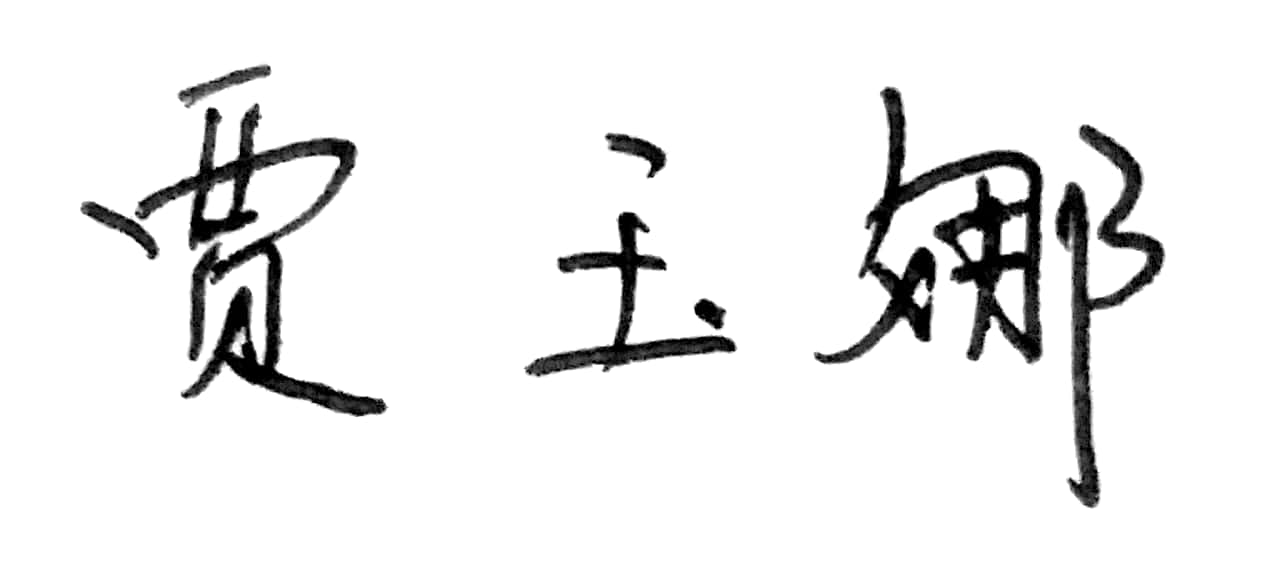 贾玉娜